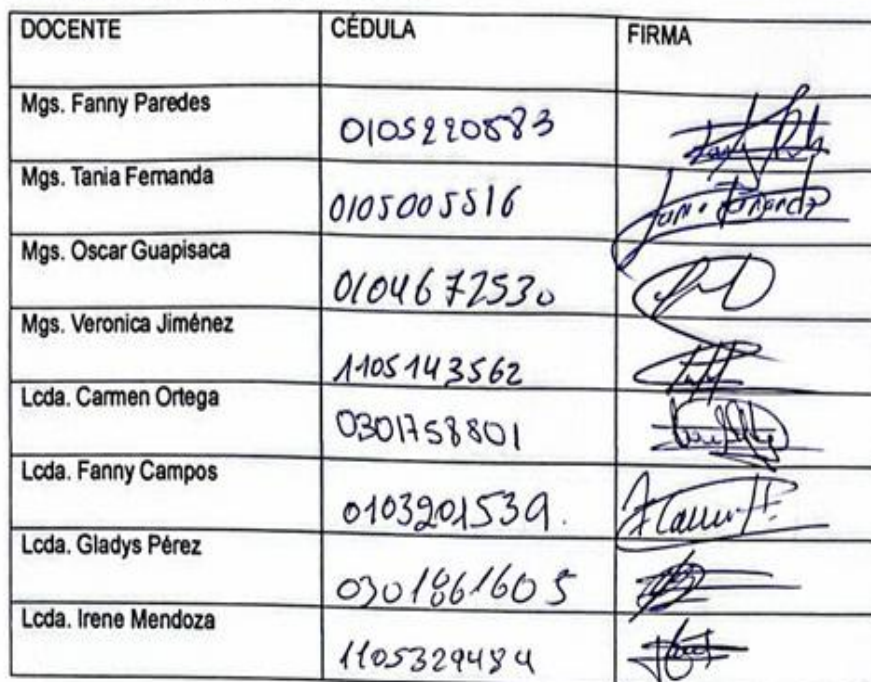 DOCENTE CÉDULA FIRMA
Mgs. Fanny Paredes 0105220583
Mgs. Tania Fernanda 0105005516
Mgs. Oscar Guapisaca 0104672530
Mgs. Veronica Jiménez 1105143562
Lcda. Carmen Ortega 0301758801
Lcda. Fanny Campos 0103201539.
Lcda. Gladys Pérez
Lcda. Irene Mendoza 1105329484